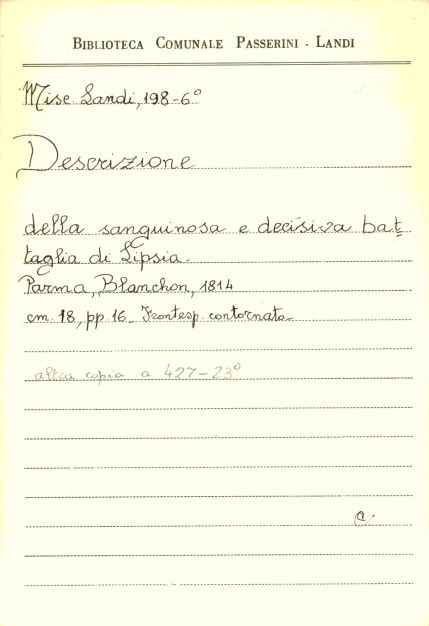 BIBLIOTECA COMUNALE PASSERINI - LANDI
Misc. Landi, 198-6°
Descrizione
della sanguinosa e decisiva bat=
taglia di Lipsia.
Parma, Blanchon, 1814
cm. 18, pp. 16. Frontesp. contornato.
altra copia a 427-23°